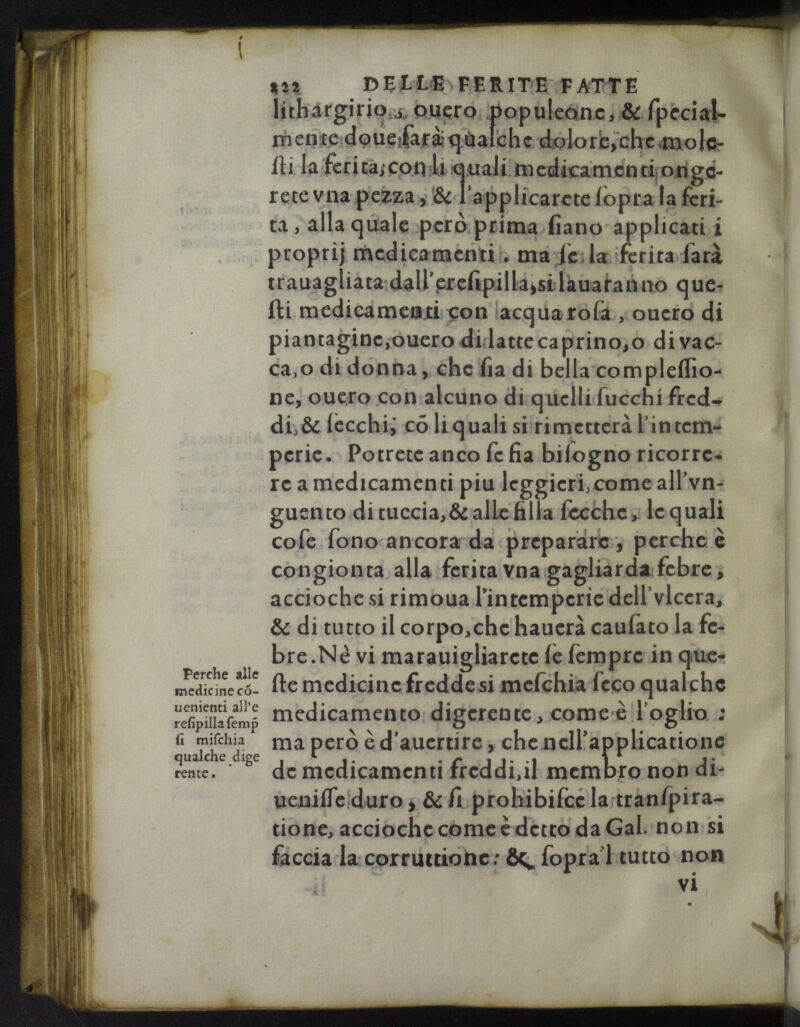 222 DELLE FERITE FATTE
lithargirio, ouero populeone, & ſpecial-
mente doue ſarà qualche dolore, che mole-
ſti la ferita; con li quali medicamenti onge-
rete vna pezza, & l'applicarete ſopra la feri-
ta, alla quale però prima ſiano applicati i
proprij medicamenti. ma ſe la ferita ſarà
trauagliata dall'ereſipilla, si lauaranno que-
ſti medicamenti con acqua roſa, ouero di
piantagine, ouero di latte caprino, o di vac-
ca, o di donna, che ſia di bella compleſſio-
ne, ouero con alcuno di quelli ſucchi fred-
di, & ſecchi; cō li quali si rimetterà l'intem-
perie. Potrete anco ſe ſia biſogno ricorre-
re a medicamenti piu leggieri, come all'vn-
guento di tuccia, & alle filla ſecche, le quali
coſe ſono ancora da preparare, perche è
congionta alla ferita vna gagliarda febre,
accioche si rimoua l'intemperie dell'vlcera,
& di tutto il corpo, che hauerà cauſato la fe-
bre. Nè vi marauigliarete ſe ſempre in que-
ſte medicine fredde si meſchia ſeco qualche
medicamento digerente, come è l'oglio:
ma però è d'auertire, che nell'applicatione
de medicamenti freddi, il membro non di-
ueniſſe duro, & ſi prohibiſce la tranſpira-
tione, accioche come è detto da Gal. non si
faccia la corruttione: & ſopra'l tutto non
vi
Perche alle
medicine cō-
uenienti all'e
reſipilla ſemp̄
ſi miſchia
qualche dige
rente.